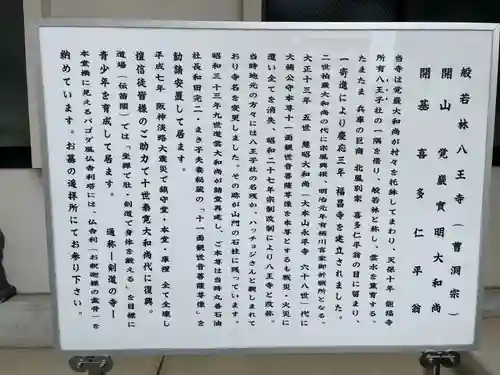 般若林八王寺（曹洞宗）
開山　覚巌實明大和尚
開基　喜多仁平翁
当寺は覚巌大和尚が村々を托鉢してまわり、天保十年 能福寺
所有八王子社の一隅を借り、般若林と称し、雲水を薫育する。
たまたま 兵庫の巨商 北風別家 喜多仁平翁の目に留まり、
一寄進により慶応三年 福昌寺を建立されました。
二世柏巌大和尚の代に花園興隆、明治元年有栖川宮家御祈願所となる。
大正十三年 五世 慧昭大和尚（大本山永平寺 六十八世）代に
大楠公守本尊十一面観世音菩薩尊像を本尊とするも戦災・火災に
遭い全てを消失、昭和二十七年宗制改制により八王寺と改称。
当時地元の方々には八王子社の名残か、ハッチョジさんと親しまれて
おり寺名を変更しました。その跡が山門の石柱に残っています。
昭和三十三年九世道雲大和尚が諸堂再建し、ご本尊は当時丸善石油
社長和田完二・まき子夫妻秘蔵の「十一面観世音菩薩尊像」を
勧請安置して居ます。
平成七年 阪神淡路大震災で鎮守堂・本堂・庫裡 全て全壊し
檀信徒皆様のご助力で十世泰寛大和尚代に復興。
道場（伝笛閣）では「坐禅で肚・剣道で身体を鍛える」を目標に
青少年を育成して居ます。　通称ー剣道の寺ー
本堂横に見えるパゴダ風仏舎利塔には、仏舎利（お釈迦様の霊骨）を
納めています。お墓の遥拝所にてお参り下さい。